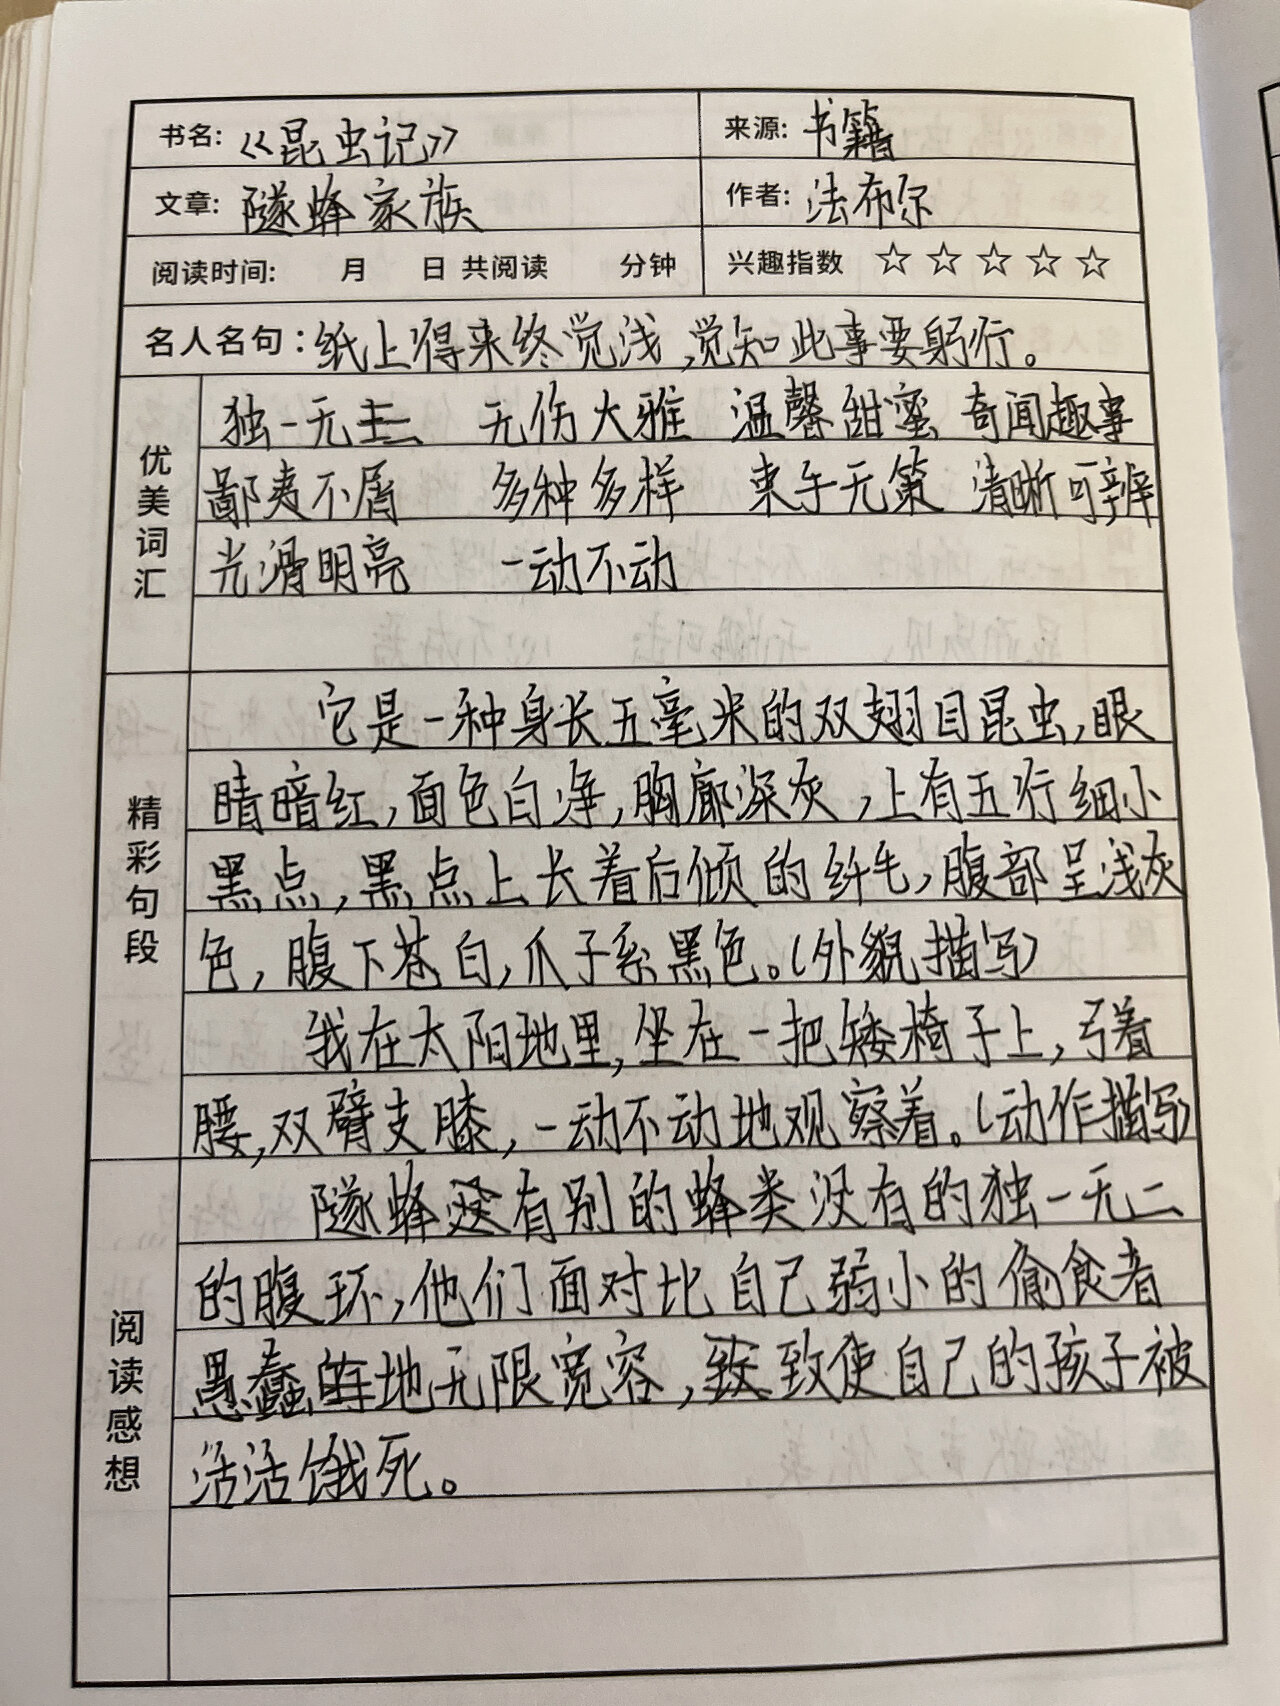 书名: 《昆虫记》 来源: 书籍
文章: 隧蜂家族 作者: 法布尔
阅读时间: 月 日 共阅读 分钟 兴趣指数 ☆☆☆☆☆
名人名句:纸上得来终觉浅,觉知此事要躬行。
优美词汇
独一无二 无伤大雅 温馨甜蜜 奇闻趣事
鄙夷不屑 多种多样 束手无策 清晰可辨
光滑明亮 一动不动
精彩句段
它是一种身长五毫米的双翅目昆虫,眼
睛暗红,面色白净,胸廓深灰,上有五行细小
黑点,黑点上长着后倾的纤毛,腹部呈浅灰
色,腹下苍白,爪子系黑色。(外貌描写)
我在太阳地里,坐在一把矮椅子上,弓着
腰,双臂支膝,一动不动地观察着。(动作描写)
阅读感想
隧蜂有别的蜂类没有的独一无二
的腹环,他们面对比自己弱小的偷食者
愚蠢地无限宽容,致使自己的孩子被
活活饿死。